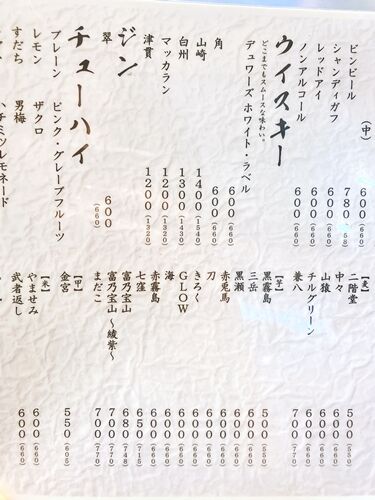 ビンビール (中) 600 (660)
シャンディガフ 780
レッドアイ 600 (660)
ノンアルコール 600 (660)
ウイスキー
どこまでもスムースな味わい。
デュワーズ ホワイト・ラベル 600 (660)
角 600 (660)
山崎 1400 (1540)
白州 1300 (1430)
マッカラン 1200 (1320)
津貫 1200 (1320)
ジン
翠 600 (660)
チューハイ
プレーン ピンク・グレープフルーツ
レモン ザクロ
すだち 男梅
ハチミツレモネード
【麦】
二階堂 500 (550)
中々 600 (660)
山猿 600 (660)
チルグリーン 600 (660)
兼八 700 (770)
【芋】
黒霧島 500 (550)
三岳 600 (660)
黒瀬 600 (660)
赤兎馬 600 (660)
刀 600 (660)
きろく 600 (660)
GLOW 600 (660)
海 600 (660)
赤霧島 600 (660)
七窪 650 (715)
富乃宝山 680 (748)
富乃宝山〜綾紫〜 700 (770)
まだこ 700 (770)
【甲】
金宮 550 (605)
【米】
やませみ 600 (660)
武者返し 600 (660)